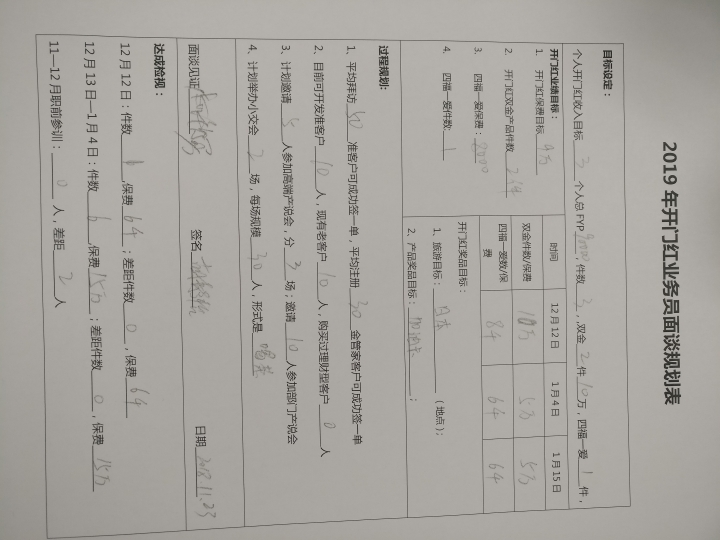 2019 年开门红业务员面谈规划表
目标设定：
个人开门红收入目标 3 个人总 FYP 90000，件数 2，双金 2 件 10 万，四福一爱 1 件，
开门红业绩目标：
1、 开门红保费目标 9万
2、 开门红双金产品件数 2件
3、 四福一爱保费： 8000
4、 四福一爱件数： 1
时间 12 月 12 日 1 月 4 日 1 月 15 日
双金件数/保费 10万 5万 5万
四福一爱数/保费 84 64 64
开门红奖品目标：
1、旅游目标： 日本 （地点）；
2、产品奖品目标： ；
过程规划：
1、 平均拜访 准客户可成功签一单，平均注册 30 金管家客户可成功签一单
2、 目前可开发准客户 10 人，现有老客户 10 人，购买过理财型客户 0 人
3、 计划邀请 5 人参加高端产说会，分 3 场；邀请 10 人参加部门产说会
4、 计划举办小交会 2 场，每场规模 30 人，形式是 喝茶
面谈见证 签名 日期 2018.11.23
达成检视：
12 月 12 日：件数 ，保费 64；差距件数 0，保费 64
12 月 13 日—1 月 4 日：件数 6，保费 15万；差距件数 0，保费 15万
11—12 月职前参训： 0 人，差距 2 人